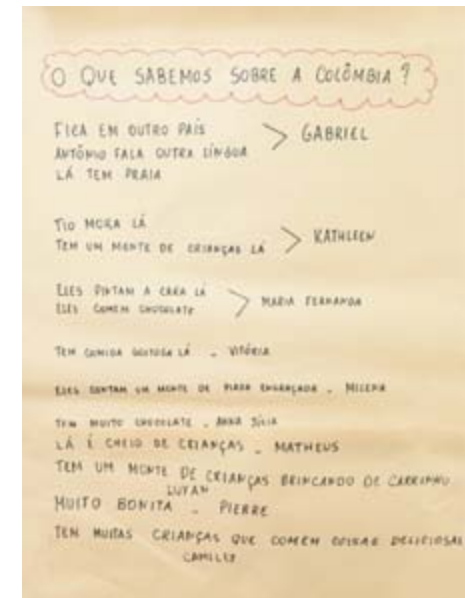 O QUE SABEMOS SOBRE A COLÔMBIA?
FICA EM OUTRO PAÍS
ANTÔNIO FALA OUTRA LÍNGUA > GABRIEL
LÁ TEM PRAIA
TIO MORA LÁ
TEM UM MONTE DE CRIANÇAS LÁ > KATHLEEN
ELES PINTAM A CARA LÁ
ELES COMEM CHOCOLATE > MARIA FERNANDA
TEM COMIDA GOSTOSA LÁ - VITÓRIA
ELES CONTAM UM MONTE DE PIADA ENGRAÇADA - MILENA
TEM MUITO CHOCOLATE - ANNA JÚLIA
LÁ É CHEIO DE CRIANÇAS - MATHEUS
TEM UM MONTE DE CRIANÇAS BRINCANDO DE CARRINHO
LUFAN
MUITO BONITA - PIERRE
TEM MUITAS CRIANÇAS QUE COMEM COISAS DELICIOSAS
CAMILLY